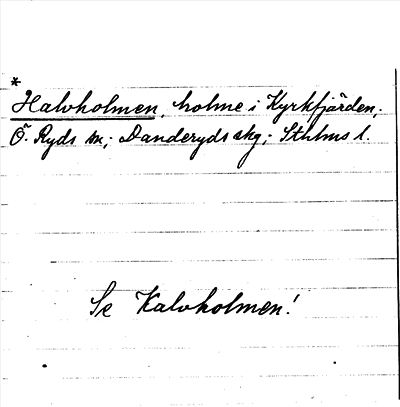 *
Halvholmen, holme i Kyrkfjärden;
Ö. Ryds sn; Danderyds skg; Sthlms l.
Se Kalvholmen!